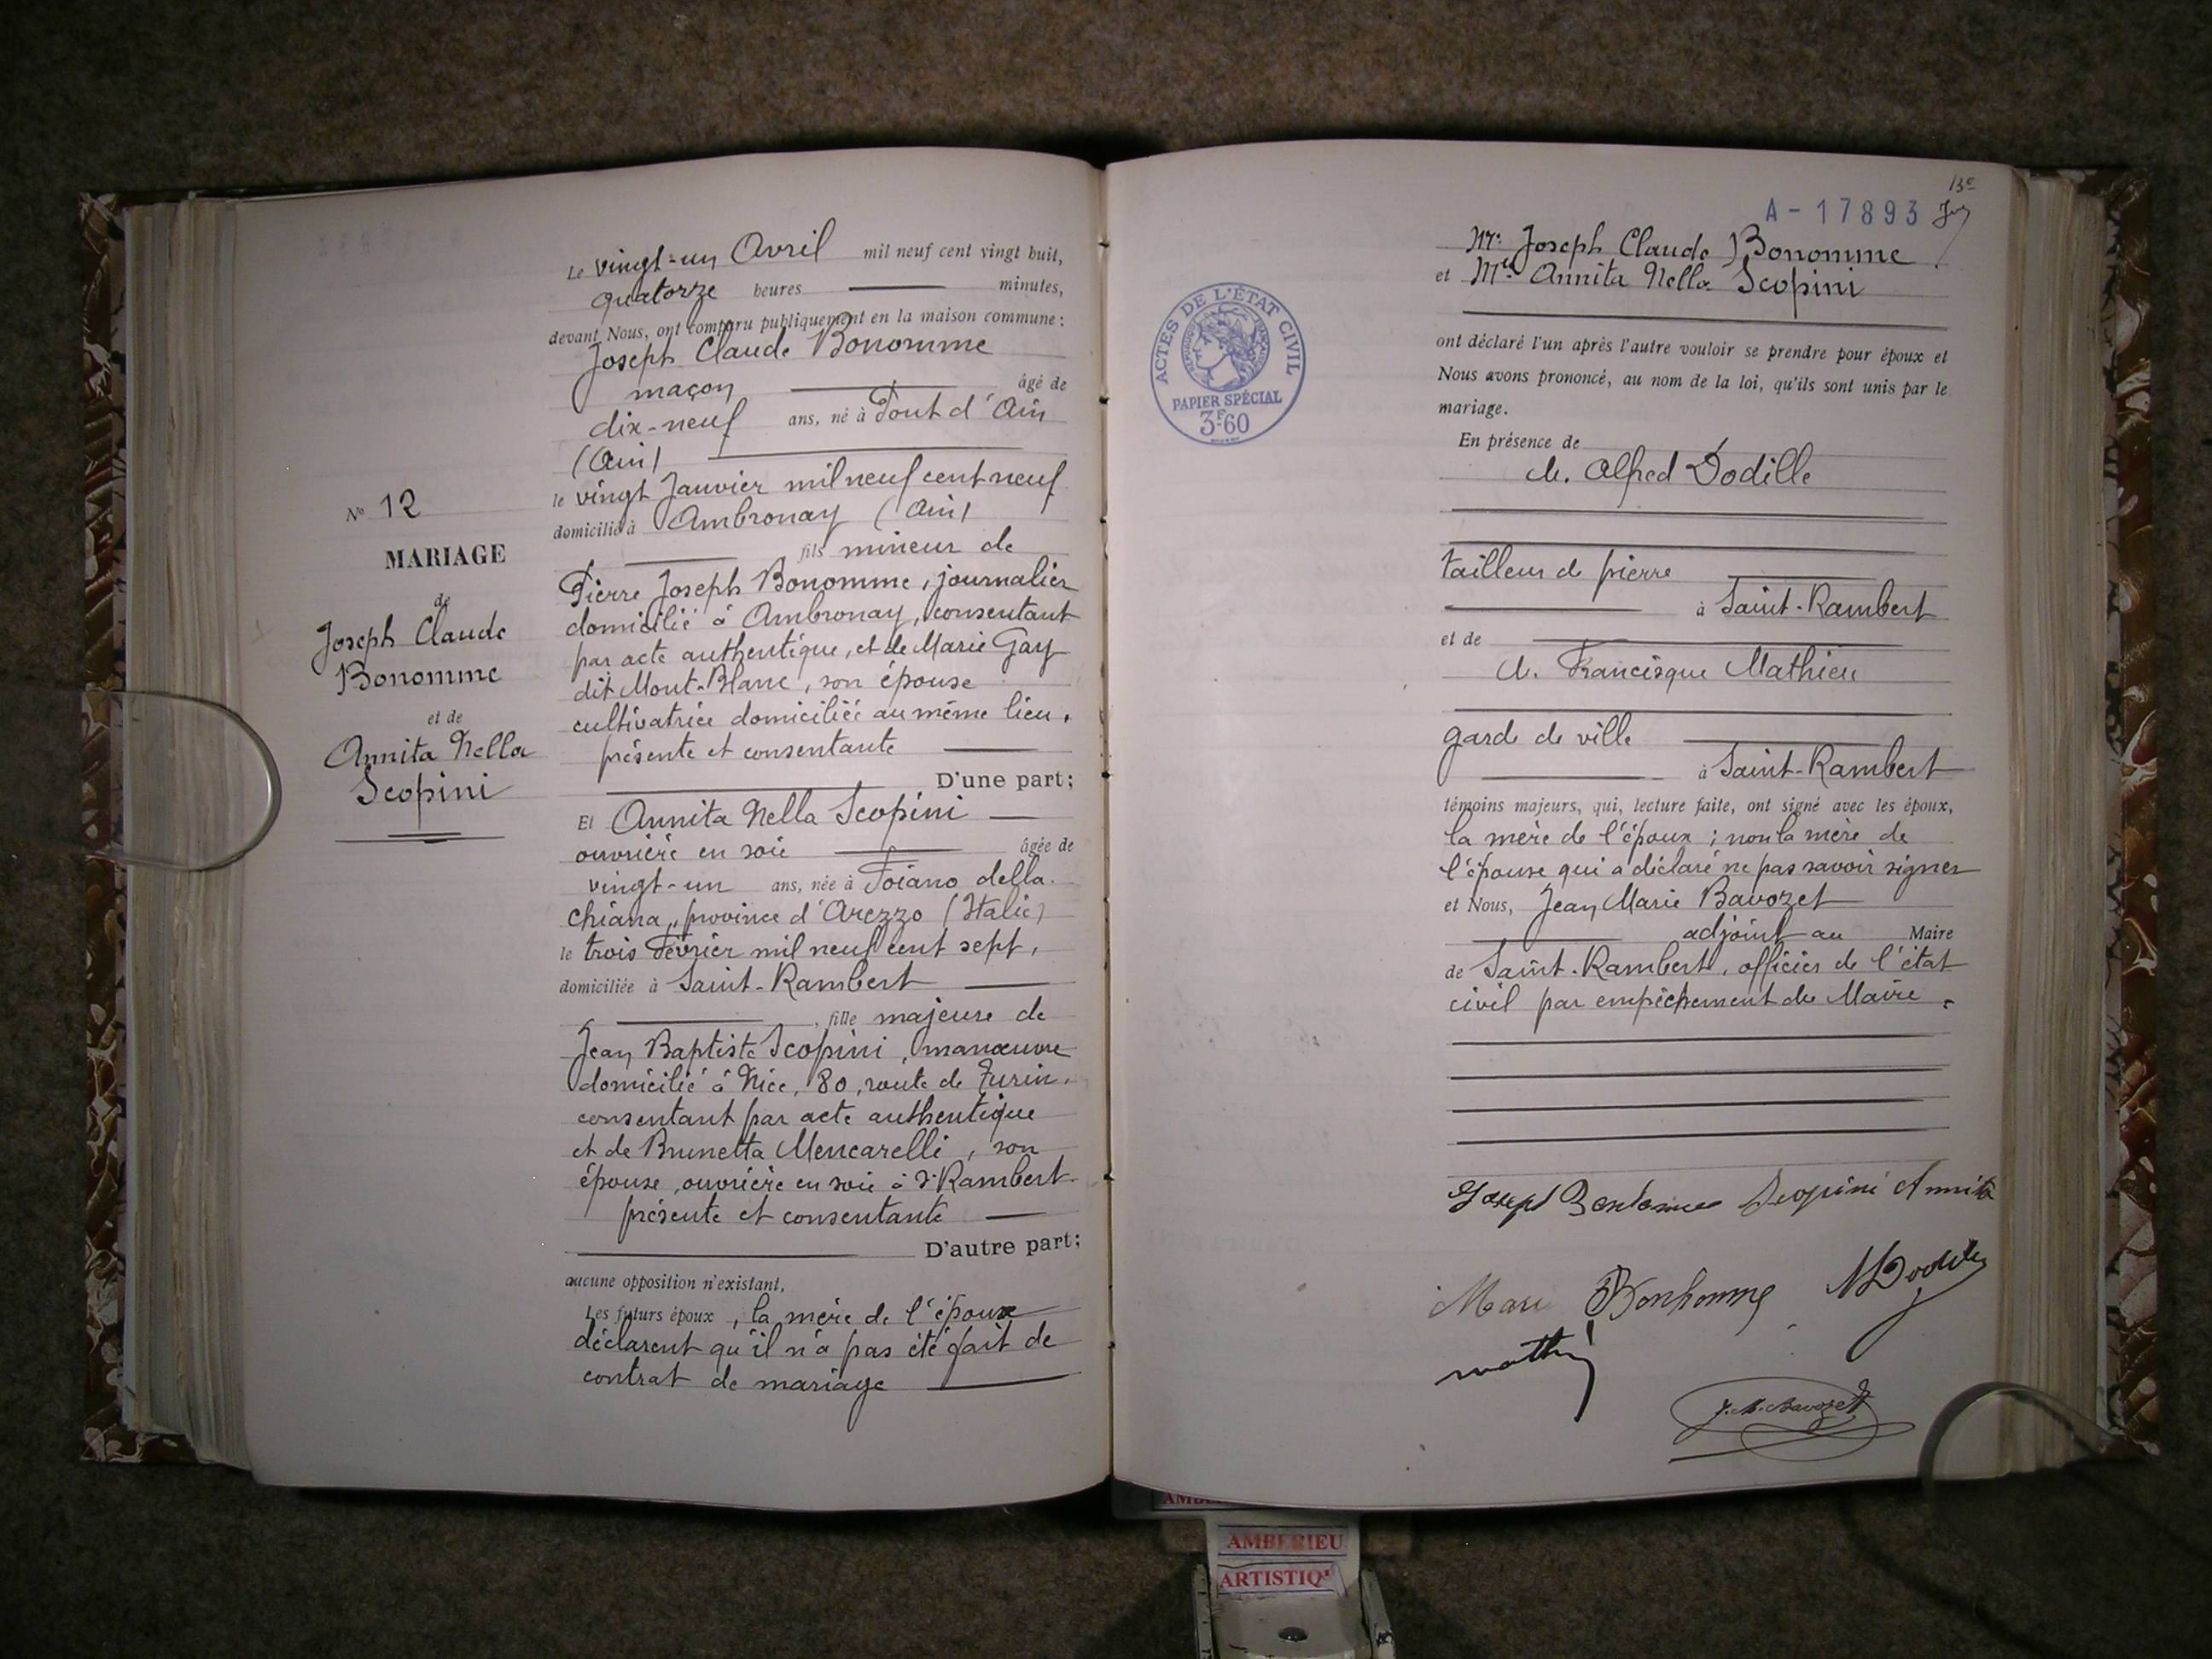 Le vingt-un Avril mil neuf cent vingt huit,
quatorze heures minutes,
devant Nous, ont comparu publiquement en la maison commune :
Joseph Claude Bonomme
maçon âgé de
dix-neuf ans, né à Pont d'Ain
(Ain)
le vingt Janvier mil neuf cent neuf
domicilié à Ambronay (Ain)
fils mineur de
Pierre Joseph Bonomme, journalier
domicilié à Ambronay, consentant
par acte authentique, et de Marie Gay
dit Mont-Blanc, son épouse
cultivatrice domiciliée au même lieu,
présente et consentante
D'une part;
Et Annita Nella Scopini
ouvrière en soie âgée de
vingt-un ans, née à Foiano della
Chiana, province d'Arezzo (Italie)
le trois Février mil neuf cent sept,
domiciliée à Saint-Rambert
, fille majeure de
Jean Baptiste Scopini, manœuvre
domicilié à Nice, 80, route de Turin,
consentant par acte authentique
et de Brunetta Mencarelli, son
épouse, ouvrière en soie à St Rambert
présente et consentante
D'autre part;
aucune opposition n'existant,
Les futurs époux, la mère de l'époux
déclarent qu'il n'a pas été fait de
contrat de mariage
No 12
MARIAGE
de
Joseph Claude
Bonomme
et de
Annita Nella
Scopini
13e
A-17893
Mr. Joseph Claude Bonomme
et Mlle Annita Nella Scopini
ont déclaré l'un après l'autre vouloir se prendre pour époux et
Nous avons prononcé, au nom de la loi, qu'ils sont unis par le
mariage.
En présence de
M. Alfred Dodille
tailleur de pierre
à Saint-Rambert
et de
M. Francisque Mathieu
garde de ville
à Saint-Rambert
témoins majeurs, qui, lecture faite, ont signé avec les époux,
la mère de l'époux ; non la mère de
l'épouse qui a déclaré ne pas savoir signer
et Nous, Jean Marie Bavozet
adjoint au Maire
de Saint-Rambert, officier de l'état
civil par empêchement du Maire.
Joseph Scopini Annita
Marie Bonhomme
J. M. Bavozet
ACTES DE L'ÉTAT CIVIL
RÉPUBLIQUE FRANÇAISE
PAPIER SPÉCIAL
3F60
AMBERIEU
ARTISTIQ